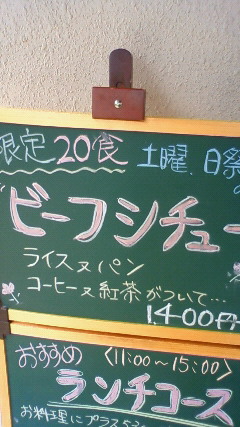 限定20食 土曜、日祭
ビーフシチュー
ライス又パン
コーヒー又紅茶がついて…
1400円
おすすめ 〈11:00〜15:00〉
ランチコース
お料理にプラス